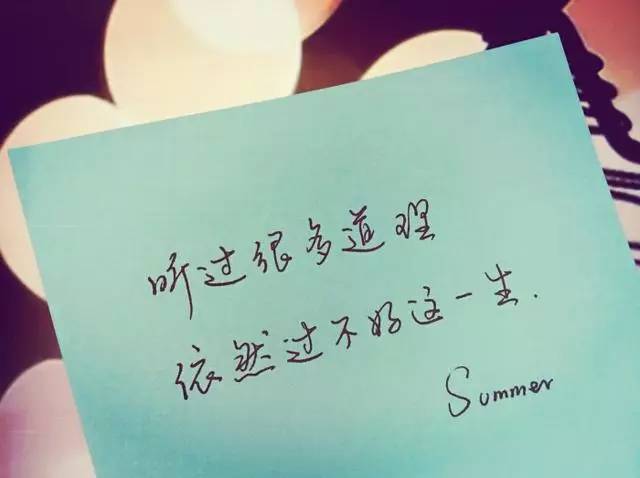 听过很多道理
依然过不好这一生.
Summer